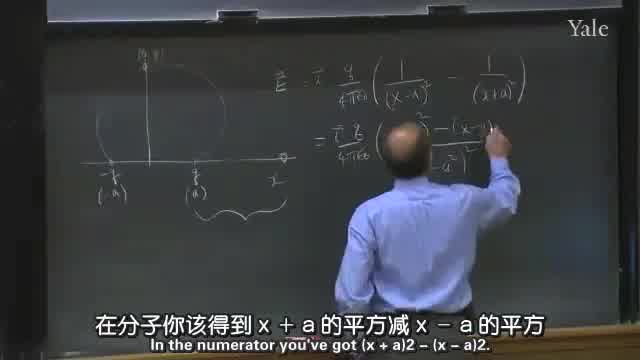 Yale
E = i q/4πε₀ ( 1/(x-a)² - 1/(x+a)² )
= i q/4πε₀ ( ² - (x-a)
-a²)²
-q q
(-a) (a) x
在分子你该得到 x + a 的平方减 x - a 的平方
In the numerator you've got (x + a)2 - (x - a)2.